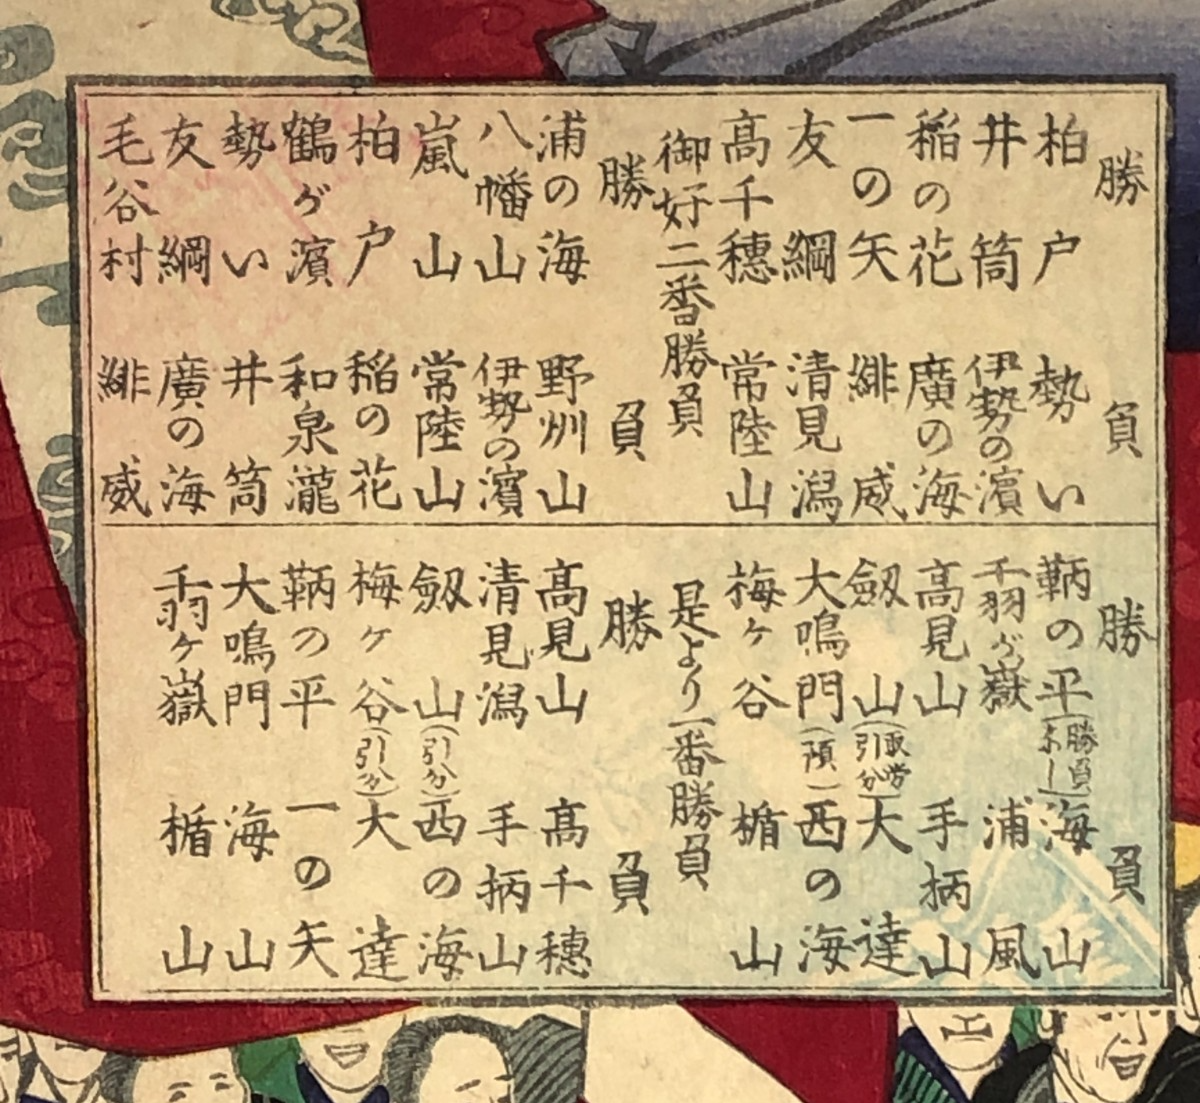 勝 負
柏戸 勢い
井筒 伊勢の濱
稲の花 廣の海
一の矢 緋威
友綱 清見潟
高千穗 常陸山
御好二番勝負
勝 負
浦の海 野州山
八幡山 伊勢の濱
嵐山 常陸山
柏戸 稲の花
鶴ヶ濱 和泉瀧
勢い 井筒
友綱 廣の海
毛谷村 緋威
勝 負
鞆の平(勝負なし)海山
千羽ヶ嶽 浦風
高見山 手柄山
劔山(取労引分)大達
大鳴門(預)西の海
梅ヶ谷 楯山
是より一番勝負
勝 負
高見山 高千穗
清見潟 手柄山
劔山(引分)西の海
梅ヶ谷(引分)大達
鞆の平 一の矢
大鳴門 海山
千羽ヶ嶽 楯山